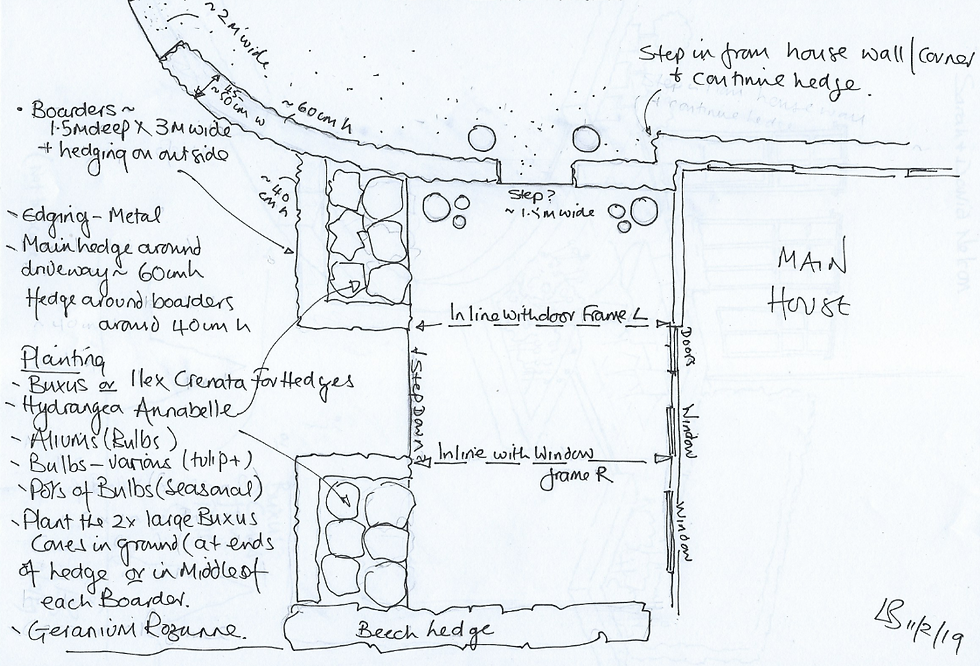 ~2M wide.
Step in from house wall/corner
+ continue hedge.
~ 45-
~50cm w
~60cm h
• Boarders ~
1.5M deep X 3M wide
+ hedging on outside
~40
cm h
Step?
~1.5M wide
- Edging - Metal
- Main hedge around
driveway ~ 60cmh
Hedge around boarders
around 40cm h
MAIN
HOUSE
In line with door Frame L
Doors
↓ Step Down ↓
Planting
- Buxus or Ilex Crenata for Hedges
- Hydrangea Annabelle
- Aliums (Bulbs)
- Bulbs - various (tulip+)
- Pots of Bulbs (Seasonal)
- Plant the 2x large Buxus
Cones in ground (at ends
of hedge or in Middle of
each Boarder.
- Geranium Rozanne.
Window
In line with Window
frame R
Window
Beech hedge
LB 11/2/19